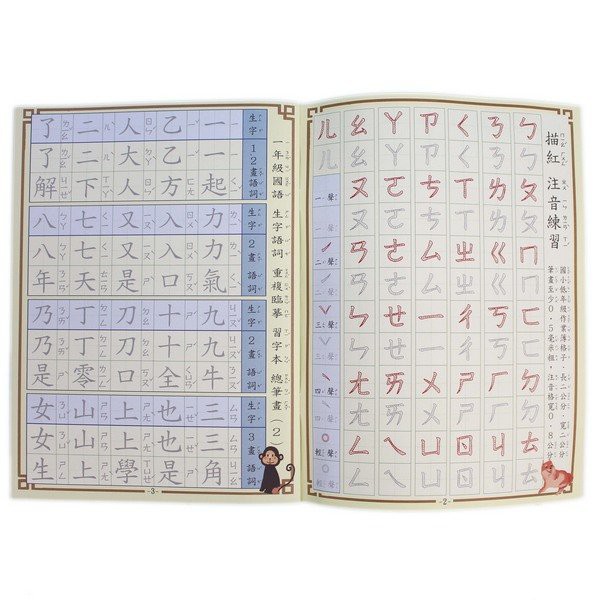 描紅 注音練習
國小低年級作業簿格子，長二公分，寬二公分
筆畫至少0.5毫米粗，注音格寬0.8公分
ㄅㄅㄆㄆㄇㄇㄈㄈㄉㄉㄊㄊ
ㄋㄋㄌㄌㄍㄍㄎㄎㄏㄏㄐㄐ
ㄑㄑㄒㄒㄓㄓㄔㄔㄕㄕㄖㄖ
ㄗㄗㄘㄘㄙㄙㄧㄧㄨㄨㄩㄩ
ㄚㄚㄛㄛㄜㄜㄝㄝㄞㄞㄟㄟ
ㄠㄠㄡㄡㄢㄢㄣㄣㄤㄤㄥㄥ
ㄦㄦ 一聲 二聲ˊ 三聲ˇ 四聲ˋ 輕聲˙
-2-
一年級國語 生字語詞 重複臨摹 習字本 總筆畫（2）
生字 12畫語詞
一一起
乙乙方
人大人
二二下
了了解
生字 2畫 語詞
力力氣
入入口
又又是
七七天
八八年
生字 2畫 語詞
九九牛
十十全
刀刀口
丁丁零
乃乃是
生字 3畫 語詞
三三角
也也是
上上學
山山上
女女生
-3-